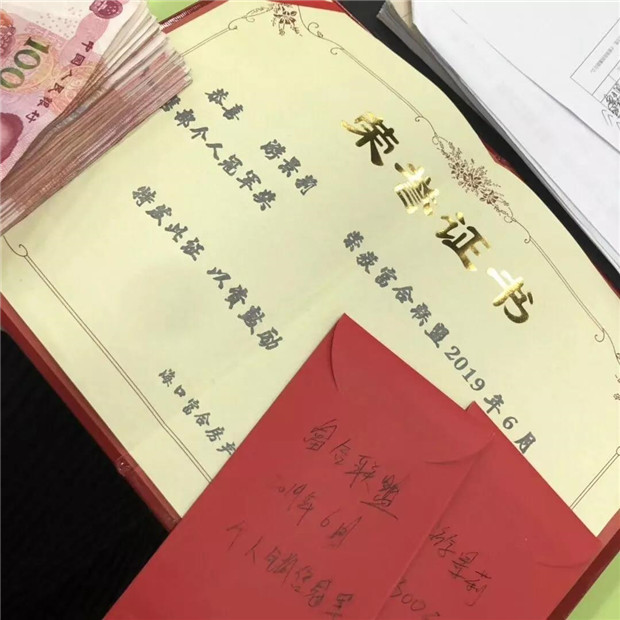 荣誉证书
恭喜 游景莉 荣获富合联盟2019年6月
个人冠军奖
特发此证 以资鼓励
海口富合房产
100
中国人民银行
富合联盟
2019年6月
个人
游景莉